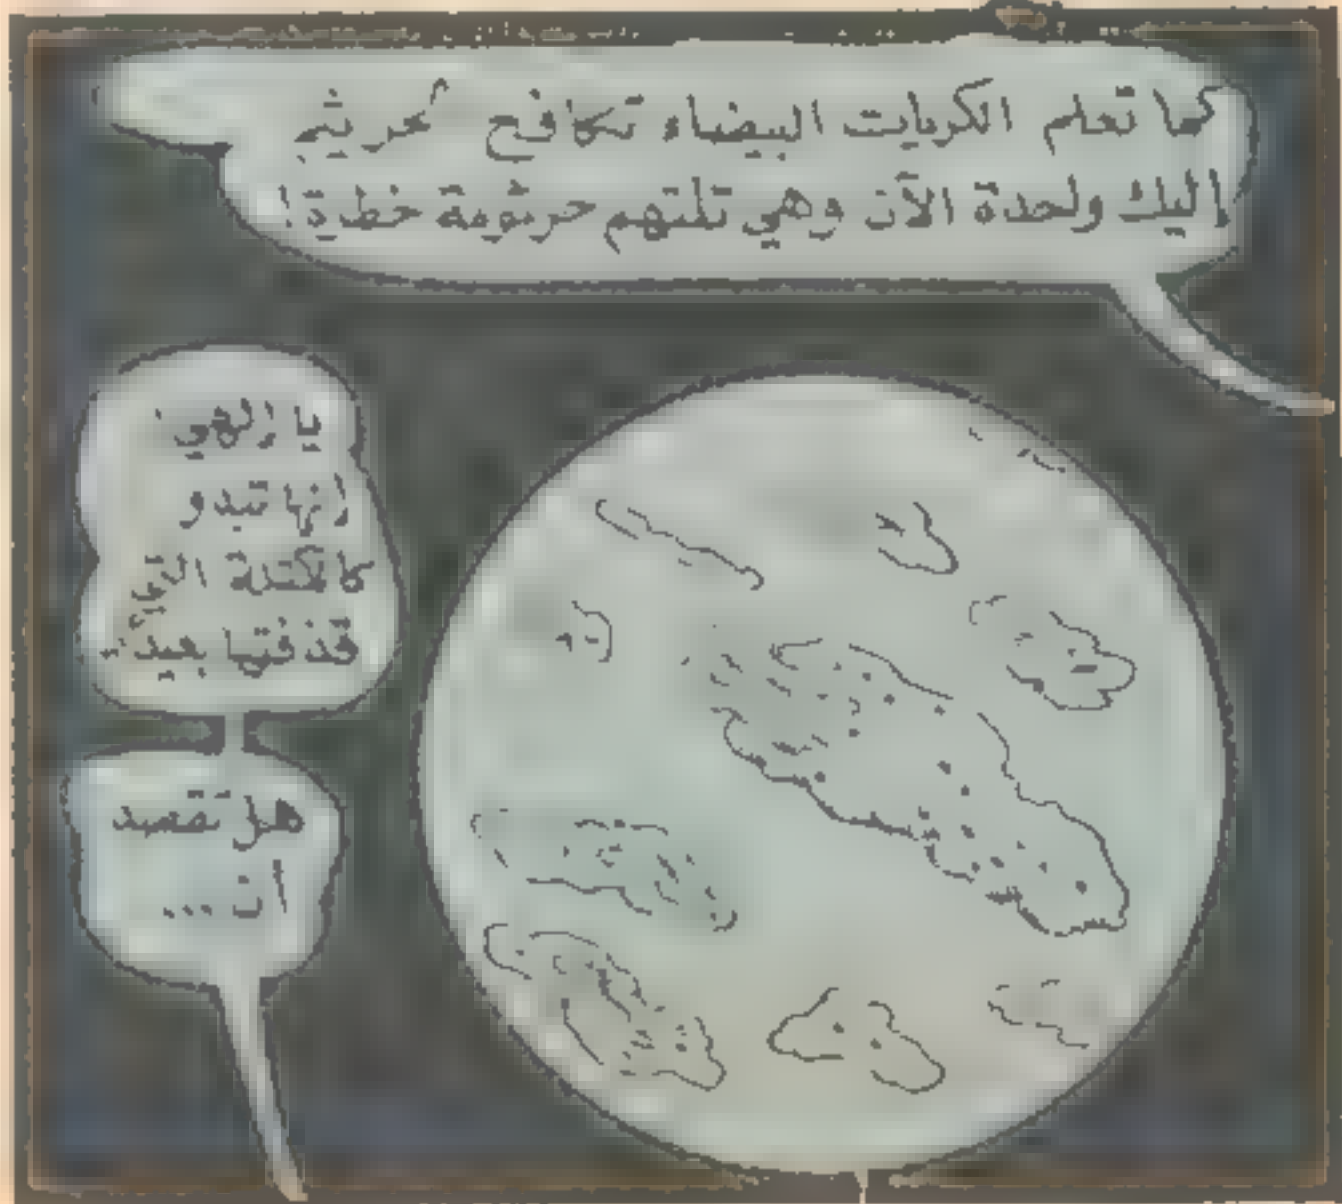 كما تعلم الكريات البيضاء تكافح
اليك واحدة الآن وهي تلتهم جرثومة خطرة!
يا إلهي
إنها تبدو
كالكتلة التي
قذفتها بعيدً..
هل تقصد
أن ...